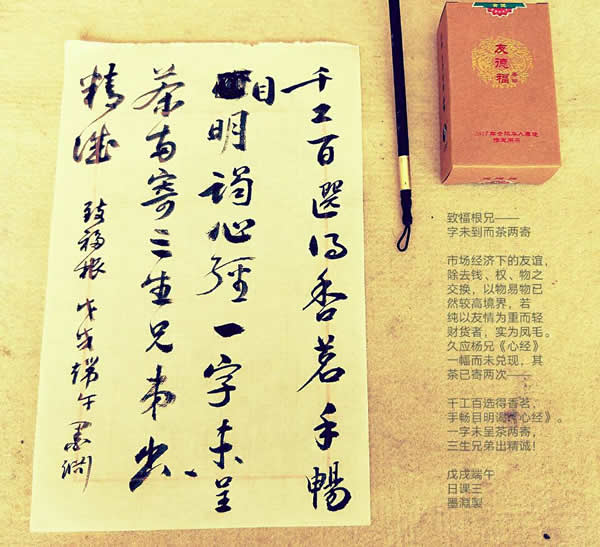 千工百選得香茗手暢
目明謁心經一字未呈
茶両寄三生兄弟出
精诚
致福根 戊戌端午 墨淵
友德福
致福根兄——
字未到而茶两寄
市场经济下的友谊，
除去钱、权、物之
交换，以物易物已
然较高境界，若
纯以友情为重而轻
财货者，实为凤毛。
久应杨兄《心经》
一幅而未兑现，其
茶已寄两次——
千工百选得香茗，
手畅目明谒《心经》。
一字未呈茶两寄，
三生兄弟出精诚！
戊戌端午
日课三
墨淵製